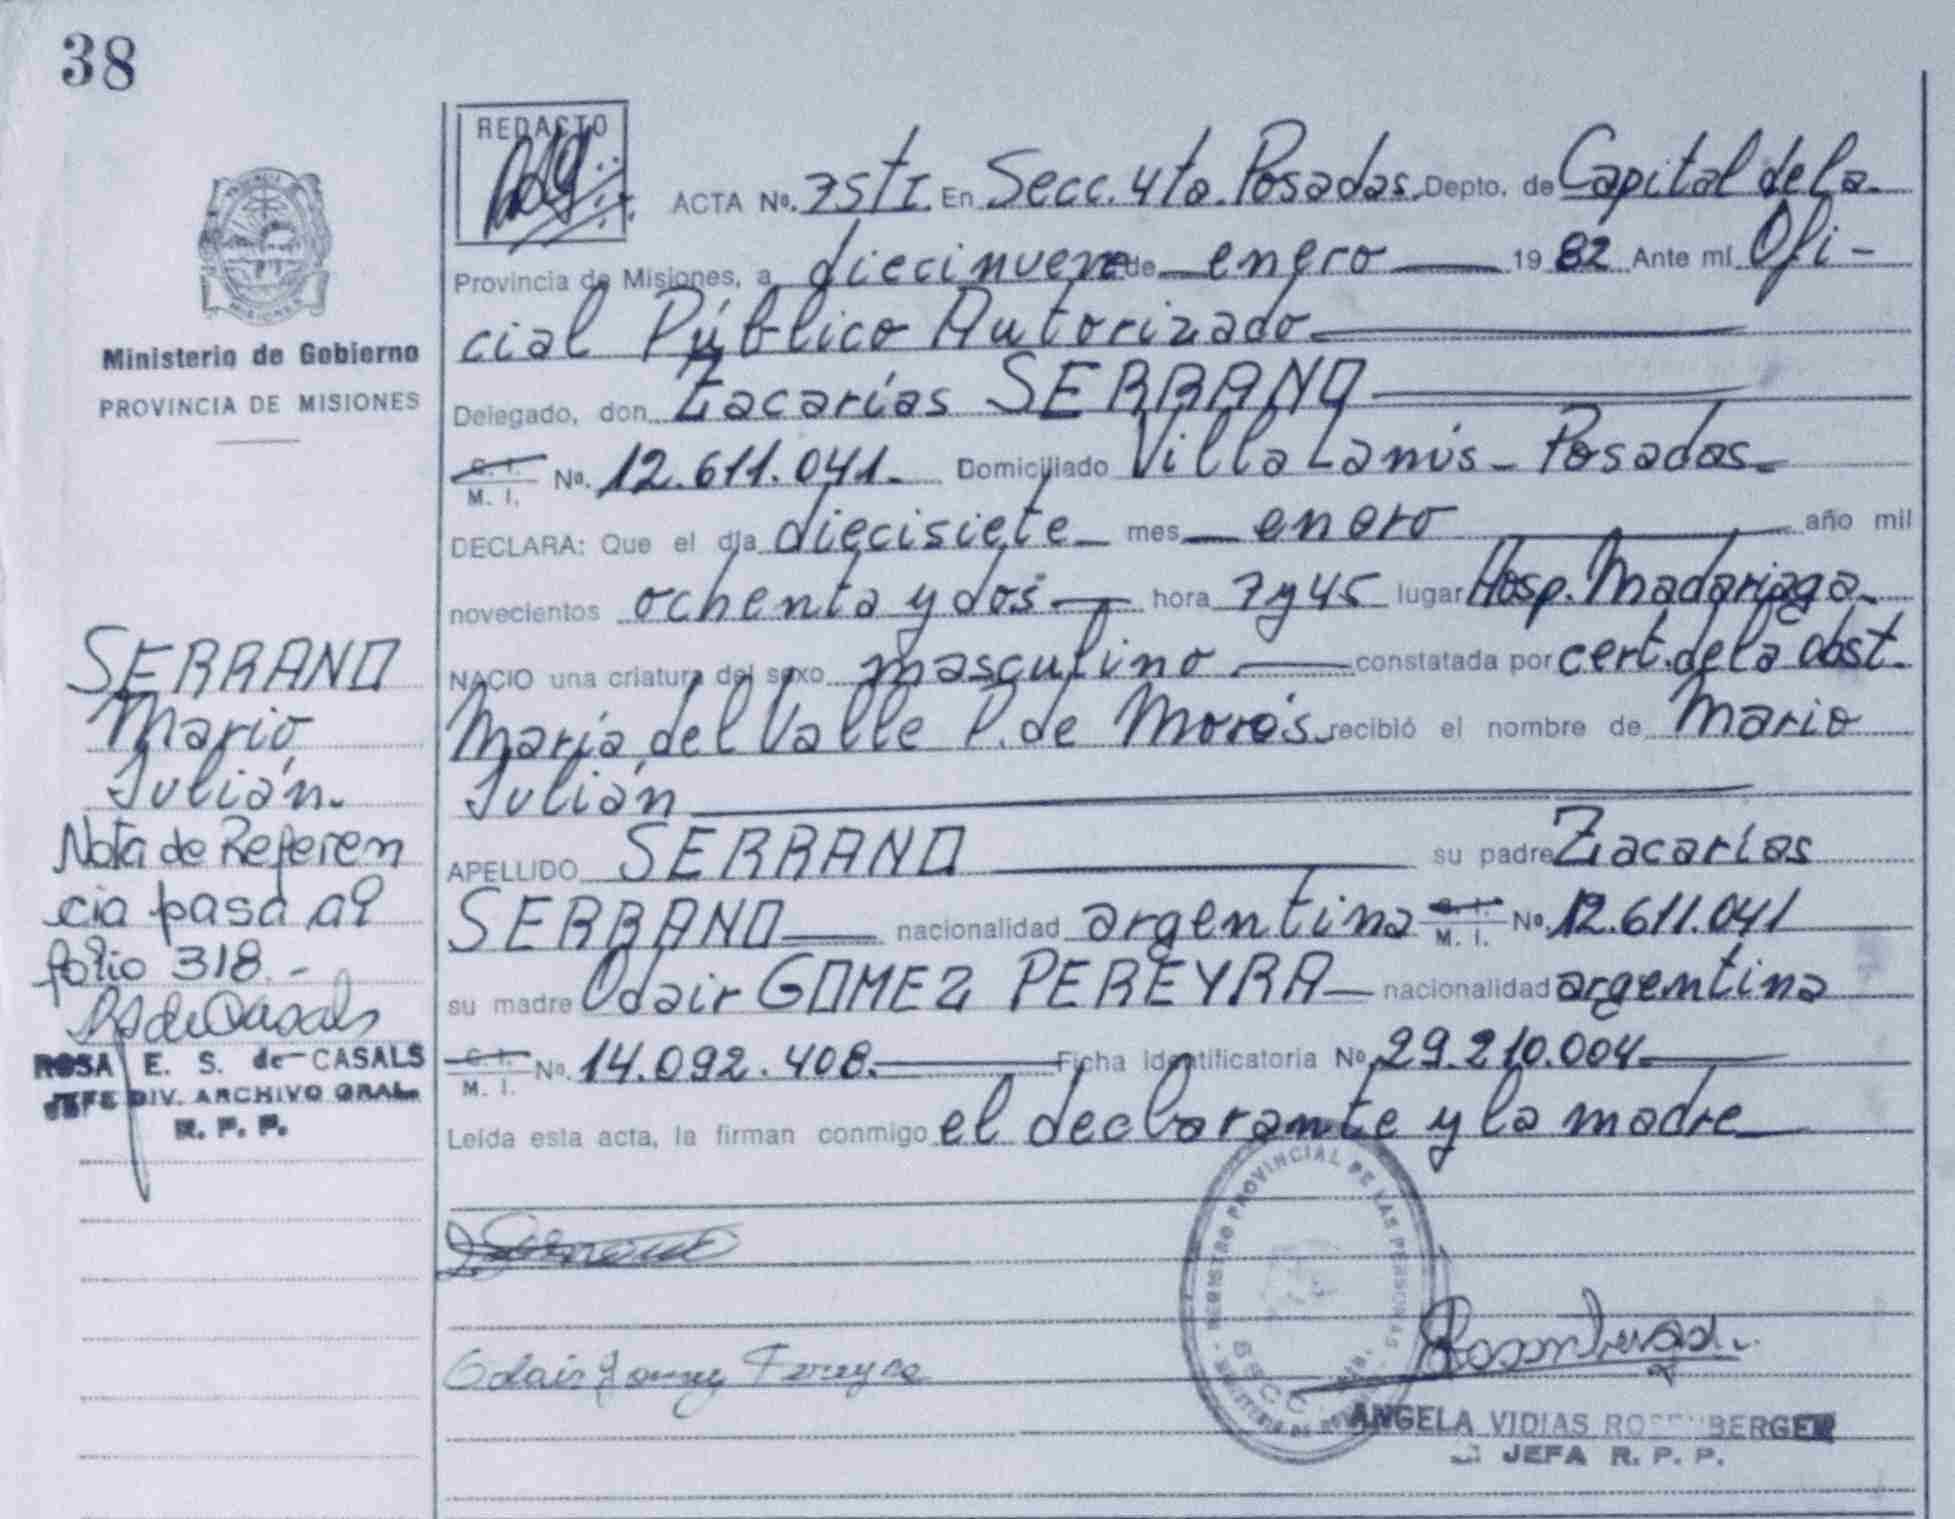 38
REDACTO
ACTA Nº. 75 t I En Secc. 4ta. Posadas. Depto. de Capital de la
Provincia de Misiones, a diecinueve de enero 1982 Ante mí Ofi-
cial Público Autorizado
Delegado, don Zacarías SERRANO
C. I.
M. I. Nº. 12.611.041. Domiciliado Villa Lanús - Posadas
DECLARA: Que el día diecisiete mes enero año mil
novecientos ochenta y dos hora 7 y 45 lugar Hosp. Madariaga
NACIO una criatura del sexo masculino constatada por cert. de la obst.
María del Valle P. de Morás recibió el nombre de Mario
Julián
APELLIDO SERRANO su padre Zacarías
SERRANO nacionalidad argentina C. I. M. I. Nº. 12.611.041
su madre Odair GOMEZ PEREYRA nacionalidad argentina
C. I.
M. I. Nº. 14.092.408. Ficha identificatoria Nº 29.210.004
Leída esta acta, la firman conmigo el declarante y la madre
Odair Gomez Pereyra
REGISTRO PROVINCIAL DE LAS PERSONAS
ANGELA VIDIAS ROSENBERGER
JEFA R. P. P.
PROVINCIA DE MISIONES
Ministerio de Gobierno
PROVINCIA DE MISIONES
SERRANO
Mario
Julián.
Nota de Referen
cia pasa al
folio 318.-
RS de Casals
ROSA E. S. de CASALS
JEFE DIV. ARCHIVO GRAL.
R. P. P.